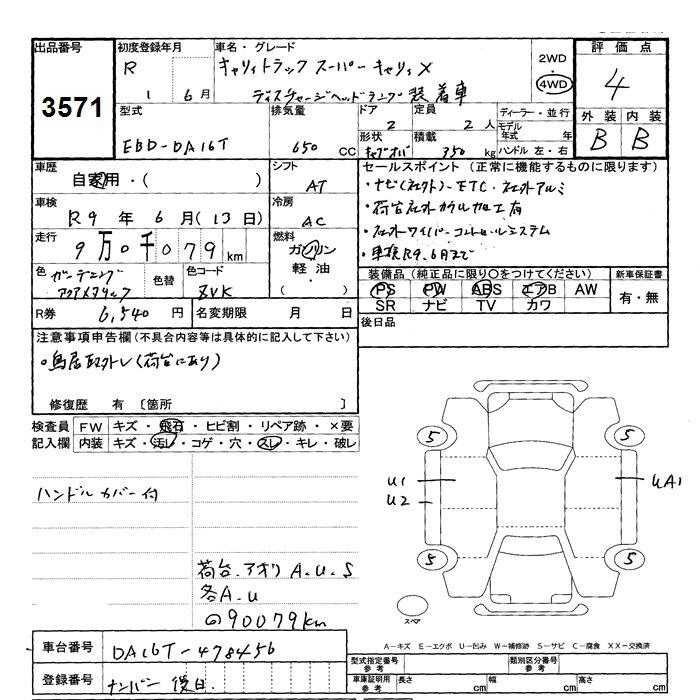 出品番号
3571
初度登録年月
R 1 6月
車名・グレード
キャリイトラック スーパーキャリィX
ディスチャージヘッドランプ装着車
2WD
4WD
評価点
4
外装 内装
B B
型式
EBD-DA16T
排気量
650 CC
ドア
2
定員
2人
形状
キャブオバ
積載
350 kg
ディーラー・並行
モデル年式 年
ハンドル 左・右
車歴
自家用・( )
シフト
AT
車検
R9年6月(13日)
冷房
AC
走行
9万0千079km
燃料
ガソリン
軽油・
( )
色
ガーデニング
アクアメタリック
色替
色コード
ZVK
R券 6,540円
名変期限 月 日
セールスポイント(正常に機能するものに限ります)
・ナビ(社外)・ETC・社外アルミ
・荷台社外 加工有
・社外ワイパーコントロールシステム
・車検R9.6月まで
装備品(純正品に限り○をつけてください)
PS PW ABS エアB AW
SR ナビ TV カワ
新車保証書
有・無
後日品
注意事項申告欄(不具合内容等は具体的に記入して下さい)
・鳥居取外し(荷台にあり)
修復歴 有〔箇所 〕
検査員記入欄
FW キズ・飛石・ヒビ割・リペア跡・×要
内装 キズ・汚レ・コゲ・穴・スレ・キレ・破レ
ハンドルカバー付
荷台.アオリ A.U.S
各A.U
90079km
5 5
U1 UA1
U2
5 5
スペア
A-キズ E-エクボ U-凹み W-補修跡 S-サビ C-腐食 XX-交換済
車台番号 DA16T-478456
登録番号 ナンバー後日
型式指定番号 参考
類別区分番号 参考
車庫証明用 参考 長さ cm 幅 cm 高さ cm